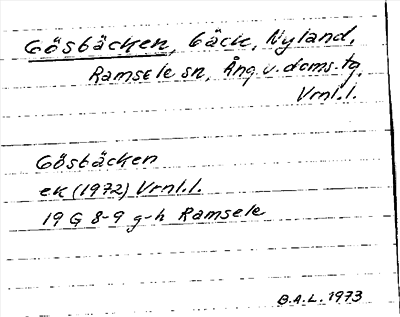 Gösbäcken, bäck, Nyland,
Ramsele sn, Ång. v. doms. tg.
Vrnl. l.
Gösbäcken
ek (1972) Vrnl. l.
19 G 8-9 g-h Ramsele
B.A.L. 1973